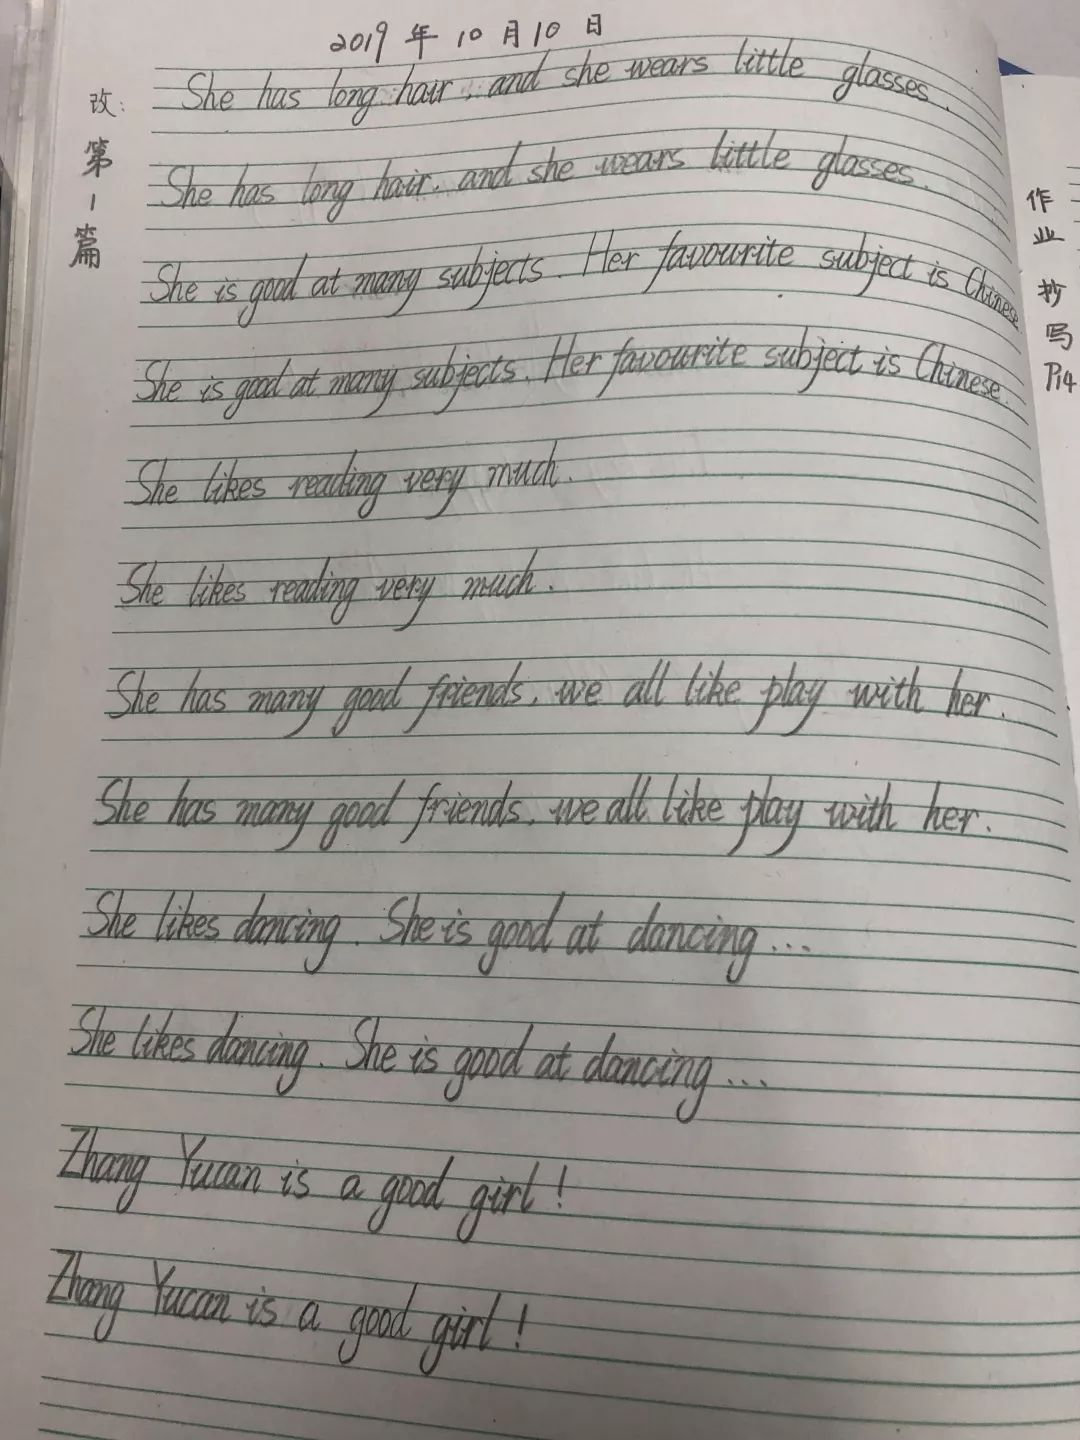 2019年10月10日
改:第1篇
She has long hair, and she wears little glasses.
She has long hair, and she wears little glasses.
She is good at many subjects. Her favourite subject is Chinese.
She is good at many subjects. Her favourite subject is Chinese.
She likes reading very much.
She likes reading very much.
She has many good friends, we all like play with her.
She has many good friends, we all like play with her.
She likes dancing. She is good at dancing...
She likes dancing. She is good at dancing...
Zhang Yucan is a good girl!
Zhang Yucan is a good girl!
作业 抄写 P14